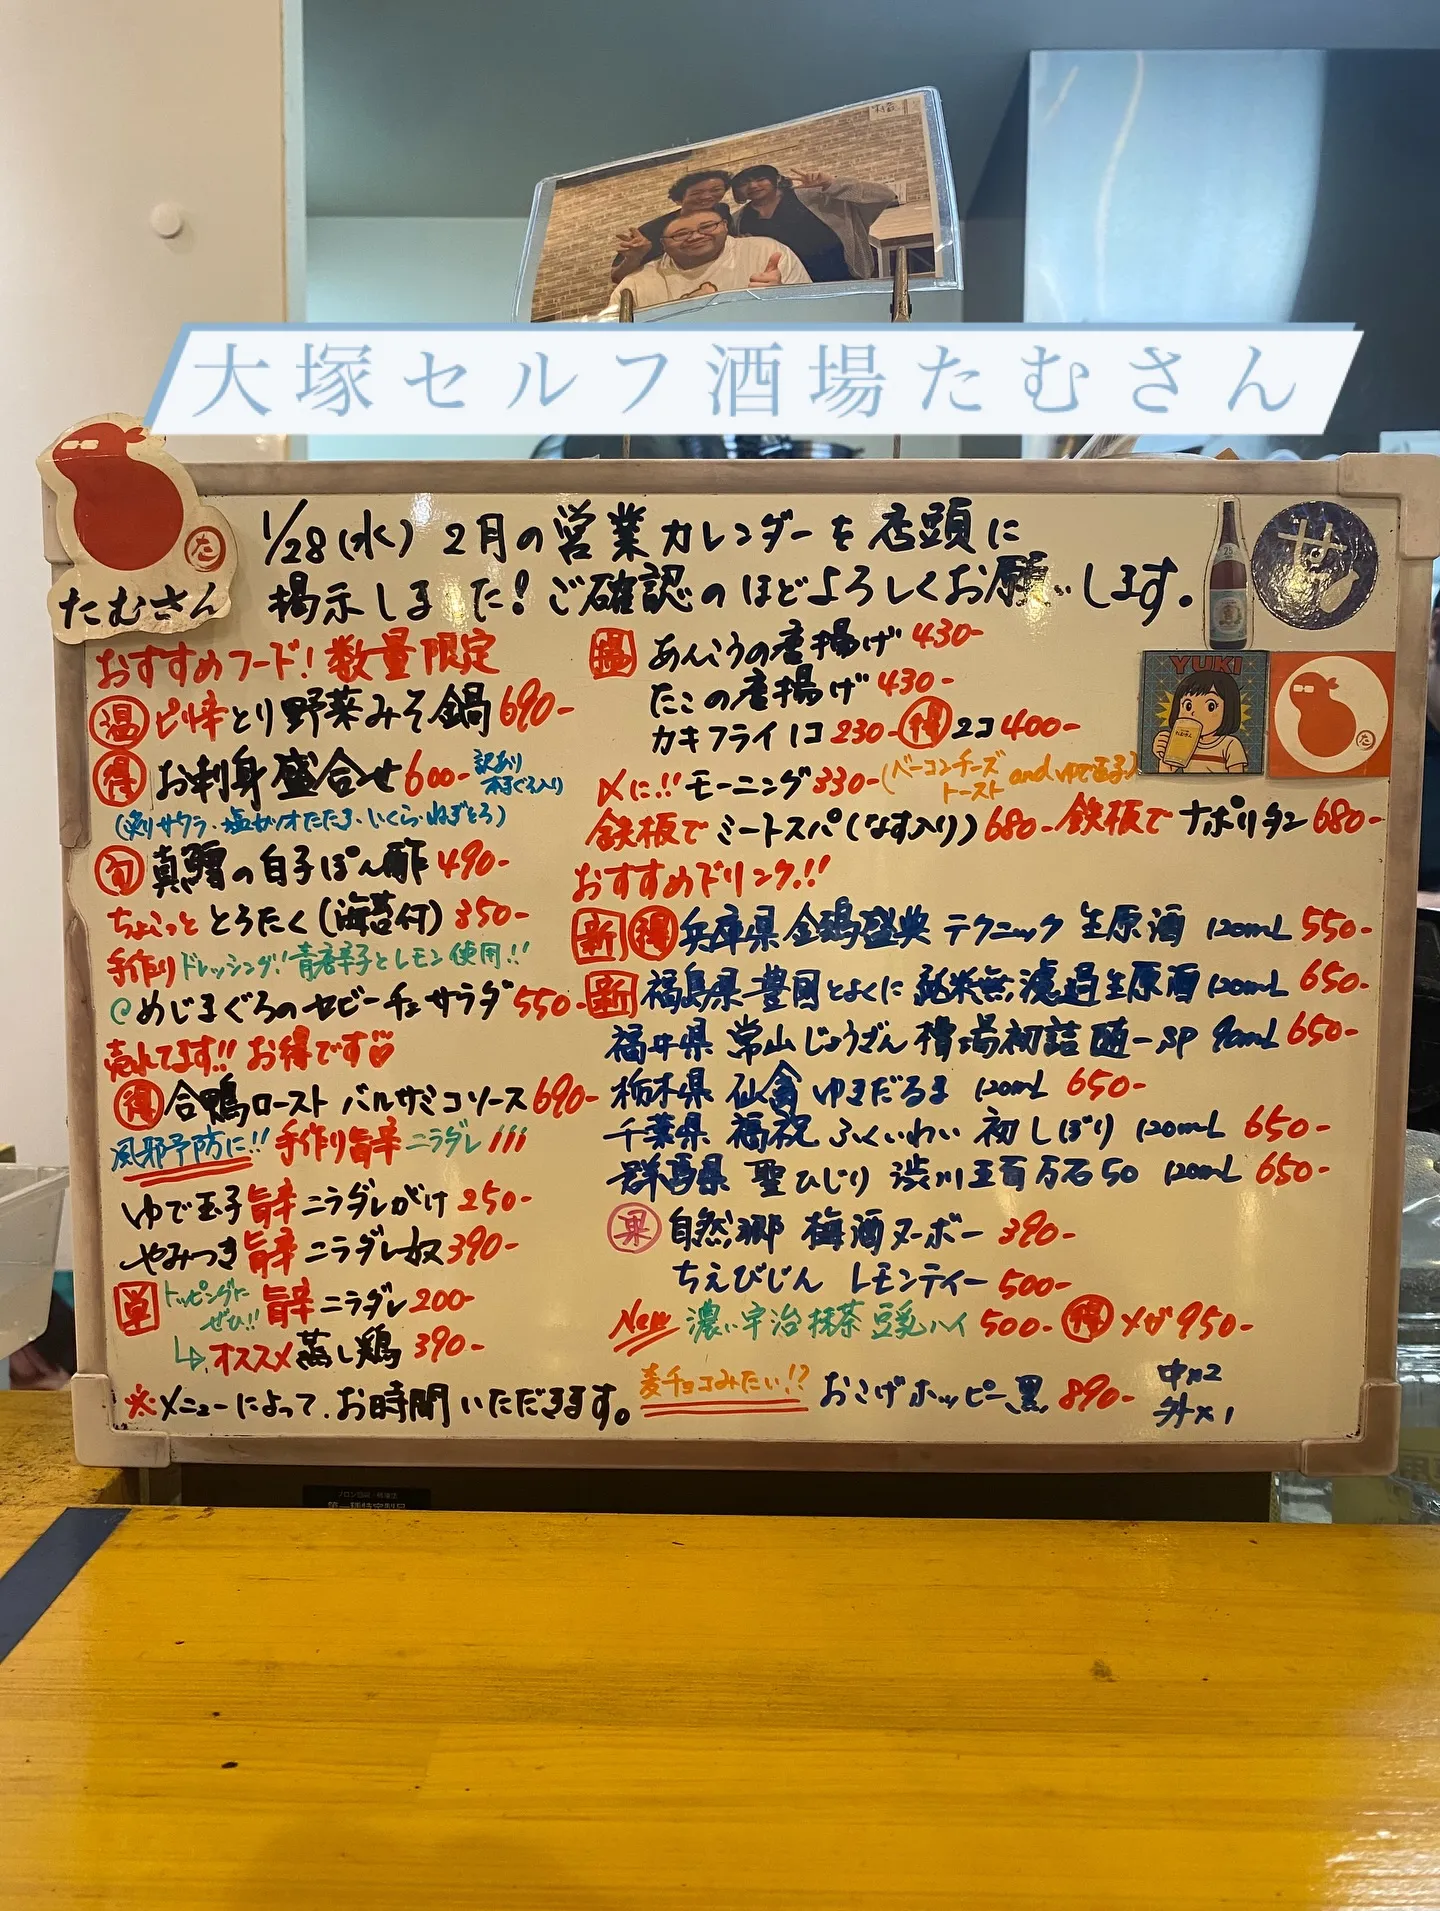 大塚セルフ酒場たむさん
たむさん
た
1/28(水) 2月の営業カレンダーを店頭に
掲示しました!ご確認のほどよろしくお願いします。
YUKI
おすすめフード!数量限定
温 ピリ辛とり野菜みそ鍋690-
得 お刺身盛合せ600- 訳あり
本まぐろ入り
真鱈の白子ぽん酢490-
旬
ちょこっと とろたく(海苔付)350-
手作りドレッシング!青唐辛子とレモン使用!!
めじまぐろのセビーチェサラダ550-
売れてます!!お得です
得 合鴨ロースト バルサミコソース690-
風邪予防に!!手作り旨辛ニラダレ!!!
ゆで玉子旨辛ニラダレがけ250-
やみつき旨辛ニラダレ奴390-
単 トッピングに
ぜひ!! 旨辛ニラダレ200-
オススメ蒸し鶏390-
※メニューによって、お時間いただきます。
揚 あんこうの唐揚げ430-
たこの唐揚げ430-
カキフライ1コ230- 得 2コ400-
〆に!!モーニング330-(ベーコンチーズ
トースト and ゆで玉子)
鉄板でミートスパ(なす入り)680- 鉄板でナポリタン680-
おすすめドリンク!!
新 得 兵庫県 金鍋盛典 テクニック 生原酒 120mL 550-
新 福島県 豊國とよくに 純米無濾過生原酒 120mL 650-
福井県 常山じょうざん 槽場初詰 随一SP 90mL 650-
栃木県 仙禽 ゆきだるま 120mL 650-
千葉県 福祝 ふくいわい 初しぼり 120mL 650-
群馬県 聖ひじり 渋川五百万石50 120mL 650-
果 自然郷 梅酒ヌーボー 390-
ちえびじん レモンティー 500-
New 濃い宇治抹茶豆乳ハイ 500- 得 メガ950-
麦チョコみたい!? おこげホッピー黒 890- 中×2
外×1